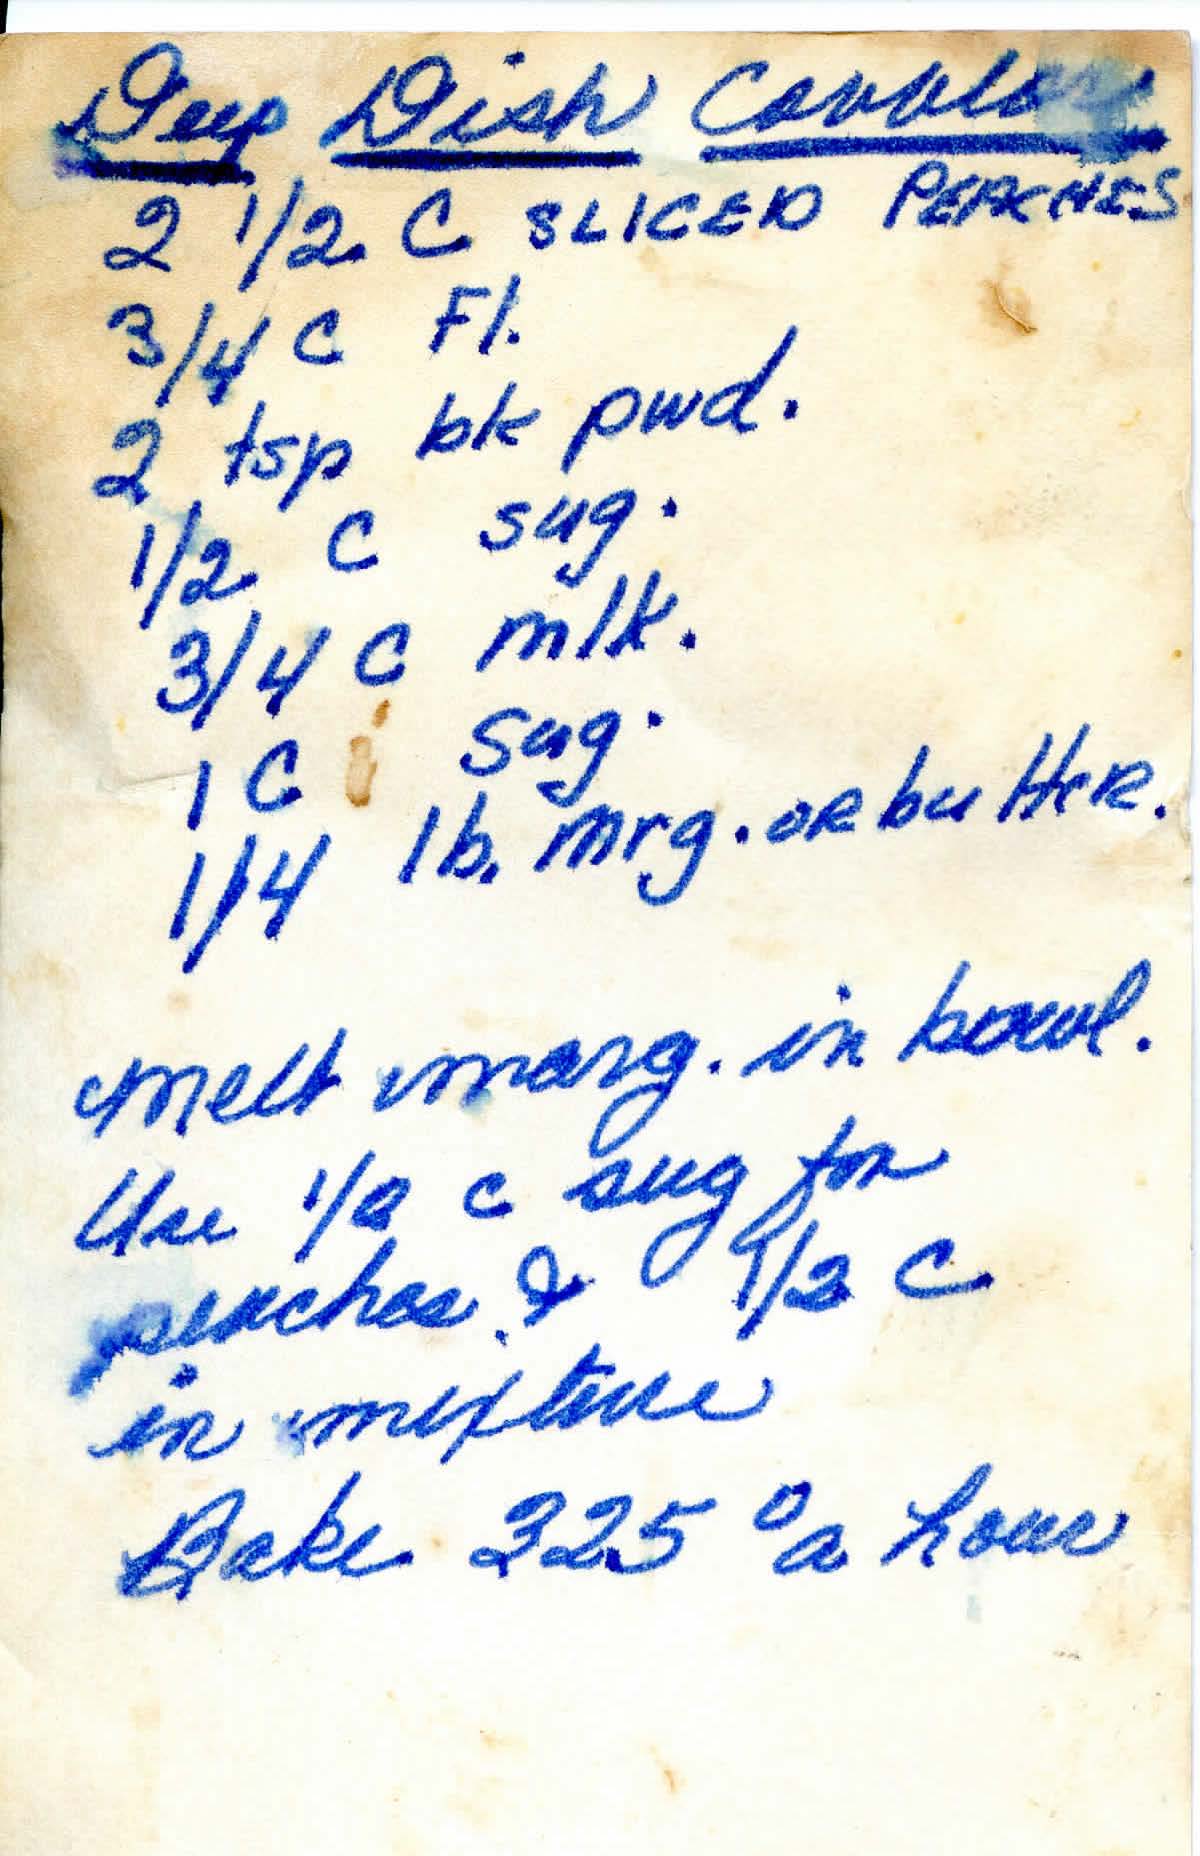 Deep Dish Cobbler
2 1/2 C SLICED PEACHES
3/4 C Fl.
2 tsp bk pwd.
1/2 C sug.
3/4 C mlk.
1 C sug.
1/4 lb. mrg. OR butter.
Melt marg. in bowl.
Use 1/2 c sug for
peaches & 1/2 C
in mixture
Bake 325° a hour